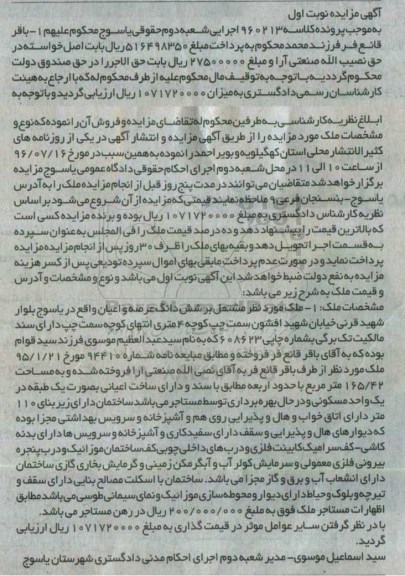 آگهی مزایده نوبت اول
به موجب پرونده کلاسه ۹۶۰۲۱۳ اجرایی شعبه دوم حقوقی یاسوج محکوم علیهم ۱- باقر
قانع فر فرزند محمد محکوم به پرداخت مبلغ ۵۱۶۴۹۸۳۵۰ ریال بابت اصل خواسته در
حق نصیب الله صنعتی آرا و مبلغ ۲۷۵۰۰۰۰۰ ریال بابت حق الاجرا در حق صندوق دولت
محکوم گردیده با توجه به توقیف مال محکوم علیه از طرف محکوم له که با ارجاع به هیئت
کارشناسان رسمی دادگستری به میزان ۱۰۷۱۷۲۰۰۰۰ ریال ارزیابی گردید و باتوجه به
ابلاغ نظریه کارشناسی به طرفین محکوم له تقاضای مزایده و فروش آن را نموده که نوع و
مشخصات ملک مورد مزایده را از طریق آگهی مزایده و انتشار آگهی در یکی از روزنامه های
کثیر الانتشار محلی استان کهگیلویه و بویر احمد را نموده به همین سبب در مورخ ۹۶/۰۷/۱۶
از ساعت ۱۰ الی ۱۱ در محل شعبه دوم اجرای احکام حقوقی دادگاه عمومی یاسوج مزایده
برگزار خواهد شد متقاضیان می توانند در مدت پنج روز قبل از انجام مزایده ملک را به آدرس
یاسوج - بنسنجان فرعی ۹ ملاحظه نمایند قیمتی که مزایده از آن شروع می شود بر اساس
نظریه کارشناس دادگستری به مبلغ ۱۰۷۱۷۲۰۰۰۰ ریال بوده و برنده مزایده کسی است
که بالاترین قیمت را پیشنهاد دهد و ده درصد قیمت ملک را فی المجلس به عنوان سپرده
به قسمت اجرا تحویل دهد و بقیه بهای ملک را ظرف ۳۰ روز پس از انجام مزایده مزایده
پرداخت نماید و در صورت عدم پرداخت مابقی بهای اموال سپرده تودیعی پس از کسر هزینه
مزایده به نفع دولت ضبط خواهد شد این آگهی نوبت اول می باشد و نوع و مشخصات و آدرس
و قیمت ملک به شرح زیر می باشد:
مشخصات ملک: ۱- ملک مورد نظر مشتمل بر شش دانگ عرصه و اعیان واقع در یاسوج بلوار
شهید قرنی خیابان شهید افشون سمت چپ کوچه ۴ متری انتهای کوچه سمت چپ دارای سند
مالکیت تک برگی بشماره چاپی ۶۰۸۶۲۳ که به نام سید عبدالعظیم موسوی فرزند سید قوام
بوده که به آقای باقر قانع فر فروخته و مطابق مبایعه نامه شماره ۹۴۴۱۰ مورخ ۹۵/۱/۲۱
ملک مورد نظر از طرف باقر قانع فر به آقای نصیب الله صنعتی آرا فروخته شده و به مساحت
۱۶۵/۴۲ متر مربع با حدود اربعه مطابق با سند و دارای ساخت اعیانی بصورت یک طبقه در
یک واحد مسکونی و در حال بهره برداری توسط مستاجر می باشد ساختمان دارای زیر بنای ۱۱۰
متر دارای اتاق خواب و هال و پذیرایی روی هم و آشپزخانه و سرویس بهداشتی مجزا بوده
که دیوارهای هال و پذیرایی و سقف دارای سفیدکاری و آشپزخانه و سرویس ها دارای بدنه
کاشی-کف سرامیک کابینت فلزی و درب های داخلی چوبی کف ساختمان موزائیک و درب پنجره
بیرونی فلزی معمولی و سرمایش کولر آب و آبگرمکن زمینی و گرمایش بخاری گازی ساختمان
دارای انشعاب آب و برق و گاز مجزا می باشد. ساختمان با اسکلت مصالح بنایی دارای سقف و
تیرچه و بلوک و حیاط دارای دیوار و محوطه سازی موزائیک و نمای سیمانی طوسی می باشد مطابق
اظهارات مستاجر ملک فوق به مبلغ ۲۰۰/۰۰۰/۰۰۰ ریال در رهن مستاجر می باشد.
با در نظر گرفتن سایر عوامل موثر در قیمت گذاری به مبلغ ۱۰۷۱۷۲۰۰۰۰ ریال ارزیابی
گردید.
سید اسماعیل موسوی- مدیر شعبه دوم اجرای احکام مدنی دادگستری شهرستان یاسوج